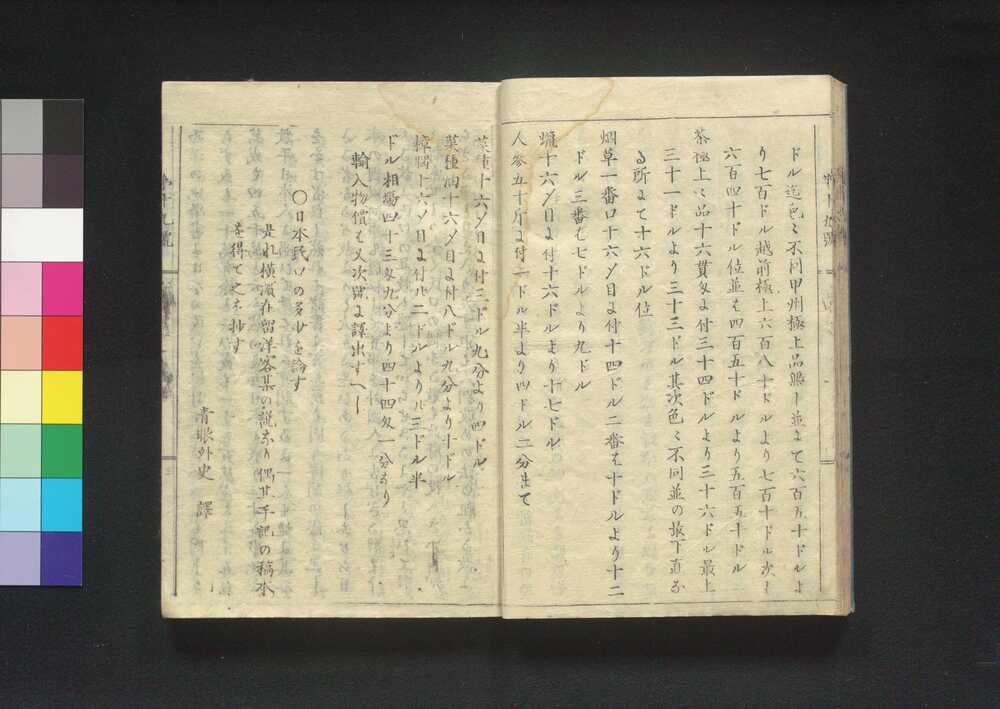 ドル迄色〻不同甲州極上品勝レ並にて六百五十ドルよ
り七百ドル越前極上六百八十ドルより七百十ドル次は
六百四十ドル位並は四百五十ドルより五百五十ドル
茶極上〻品十六貫目に付三十四ドルより三十六ドル最上
三十一ドルより三十三ドル其次色〻不同並の最下直な
る所にて十六ドル位
烟草一番口十六〆目に付十四ドル二番は十ドルより十二
ドル三番は七ドルより九ドル
蝋十六〆目に付十六ドルより十七ドル
人参五十斤に付一ドル半より四ドル二分まで
菜種十六〆目に付三ドル九分より四ドル
菜種油十六〆目に付八ドル九分より十ドル
樟脳十六〆目に付廿二ドルより廿三ドル半
ドル相場四十三匁九分より四十四匁一分なり
輸入物價も又次號に譯出すへし
〇日本民口の多少を論す
是れ横濱在留洋客某の説なり偶其手記の稿本
を得て之を抄す
青眼外史 譯